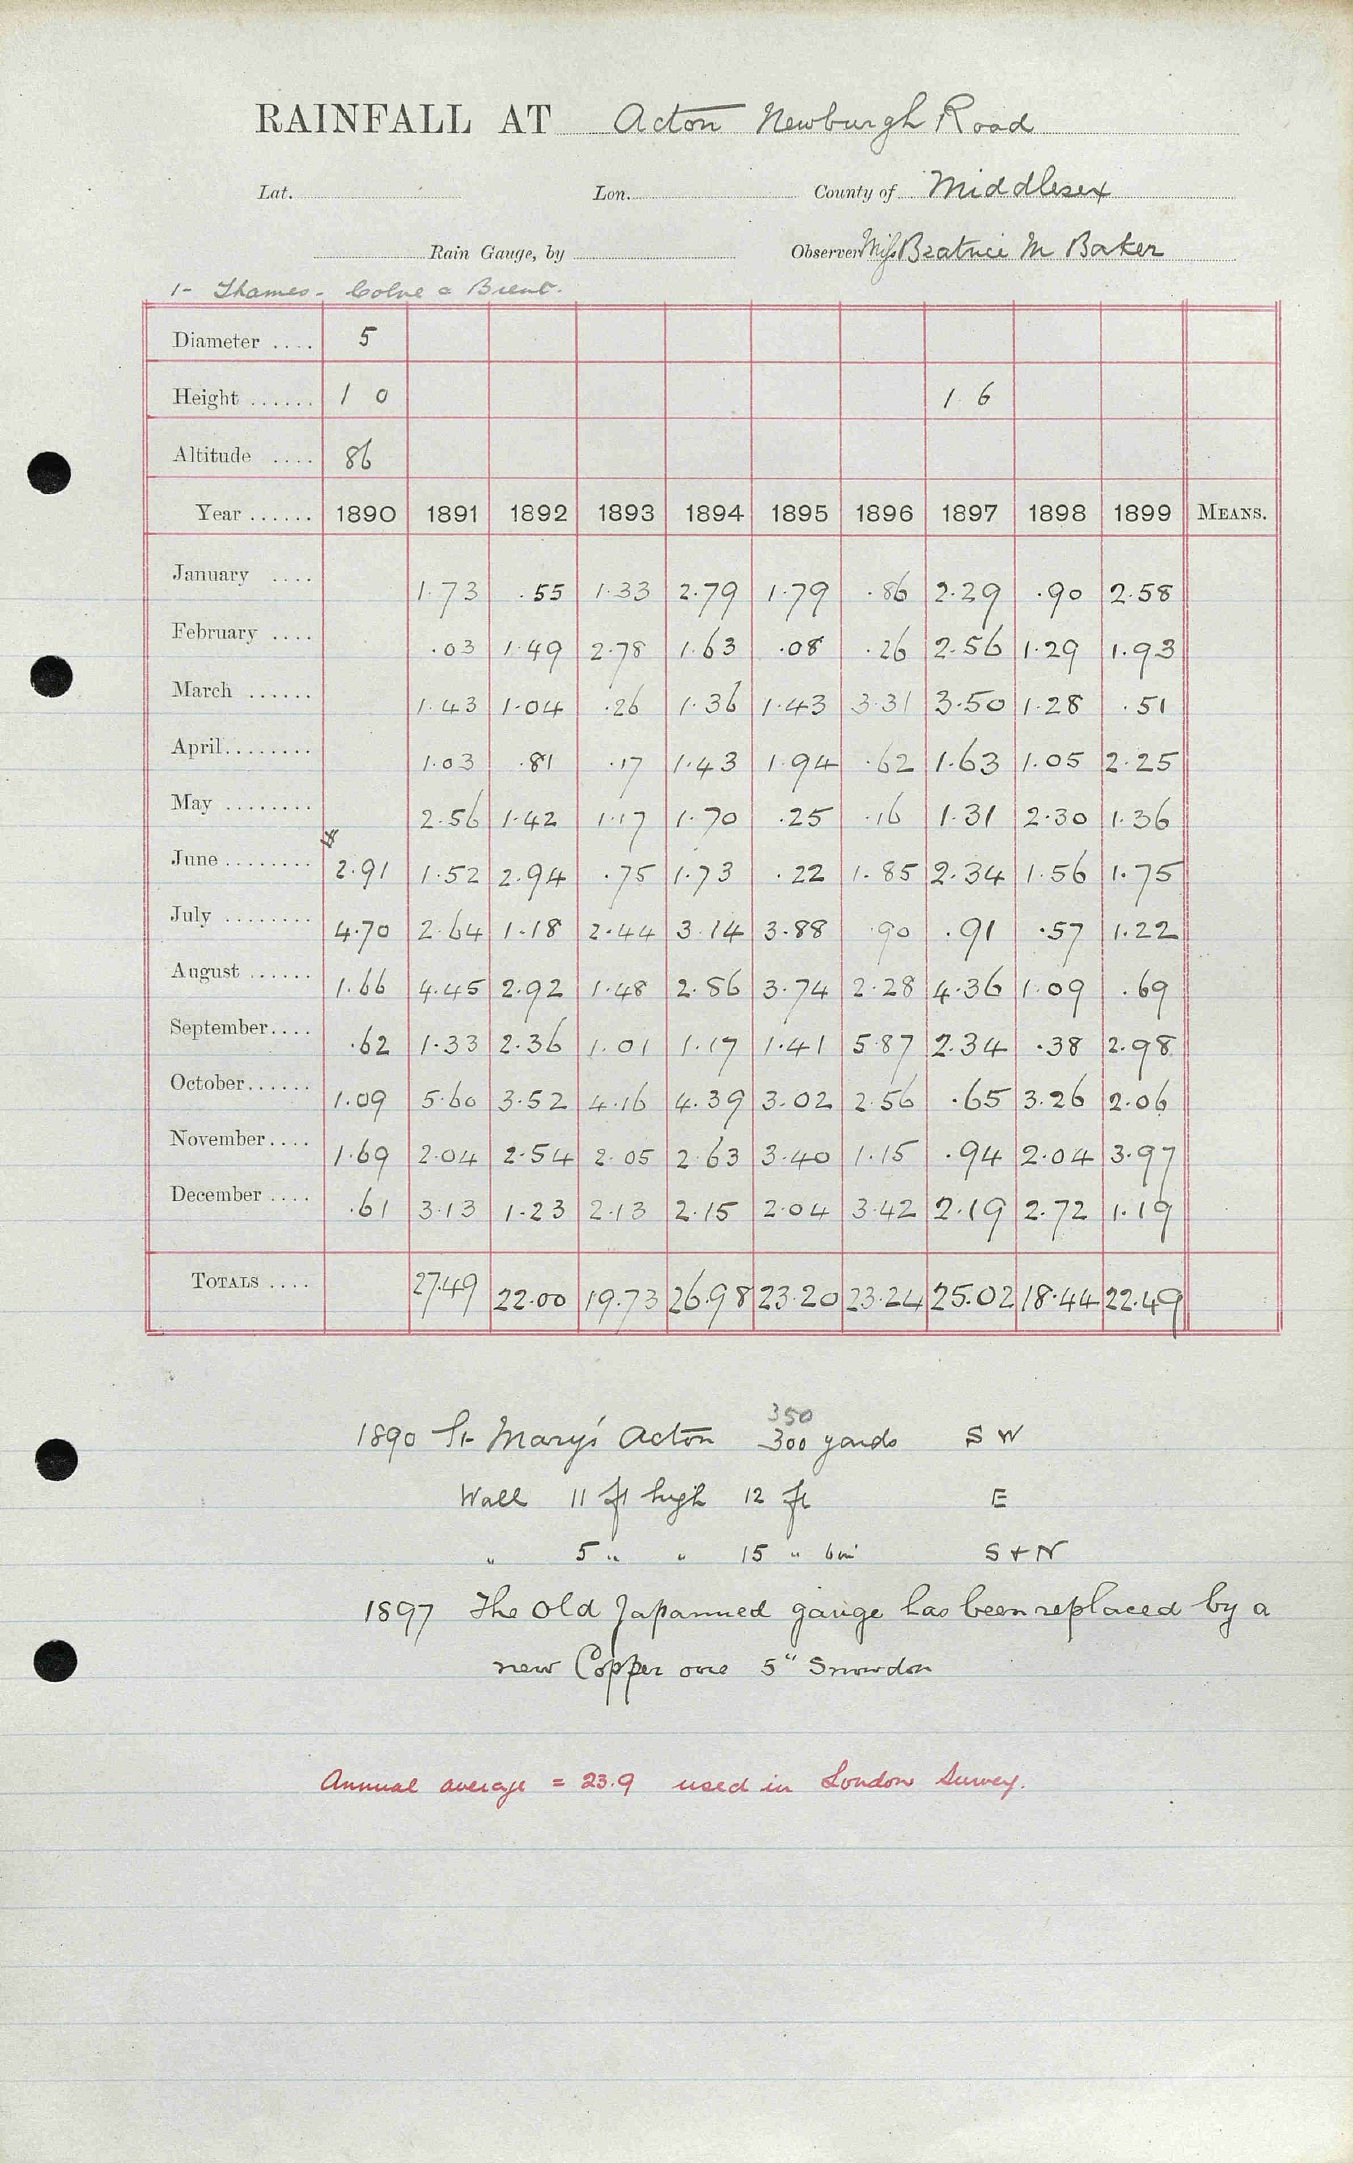 RAINFALL AT Acton Newburgh Road
Lat. Lon. County of Middlesex
Rain Gauge, by Observer Miss Beatrice M Baker
1- Thames - Colne & Brent.
Diameter .... 5
Height ...... 1 0 1 6
Altitude .... 86
Year ...... 1890 1891 1892 1893 1894 1895 1896 1897 1898 1899 MEANS.
January .... 1.73 .55 1.33 2.79 1.79 .86 2.29 .90 2.58
February .... .03 1.49 2.78 1.63 .08 .26 2.56 1.29 1.93
March ...... 1.43 1.04 .26 1.36 1.43 3.31 3.50 1.28 .51
April........ 1.03 .81 .17 1.43 1.94 .62 1.63 1.05 2.25
May ........ 2.56 1.42 1.17 1.70 .25 .16 1.31 2.30 1.36
June ........ 2.91 1.52 2.94 .75 1.73 .22 1.85 2.34 1.56 1.75
July ........ 4.70 2.64 1.18 2.44 3.14 3.88 .90 .91 .57 1.22
August ...... 1.66 4.45 2.92 1.48 2.86 3.74 2.28 4.36 1.09 .69
September.... .62 1.33 2.36 1.01 1.17 1.41 5.87 2.34 .38 2.98
October...... 1.09 5.60 3.52 4.16 4.39 3.02 2.56 .65 3.26 2.06
November.... 1.69 2.04 2.54 2.05 2.63 3.40 1.15 .94 2.04 3.97
December .... .61 3.13 1.23 2.13 2.15 2.04 3.42 2.19 2.72 1.19
TOTALS .... 27.49 22.00 19.73 26.98 23.20 23.24 25.02 18.44 22.49
350
1890 St Mary's Acton 300 yards S W
Wall 11 ft high 12 ft E
" 5 " " 15 " 6 in S + N
1897 The old Japanned gauge has been replaced by a
new Copper one 5" Snowdon
Annual average = 23.9 used in London Survey.